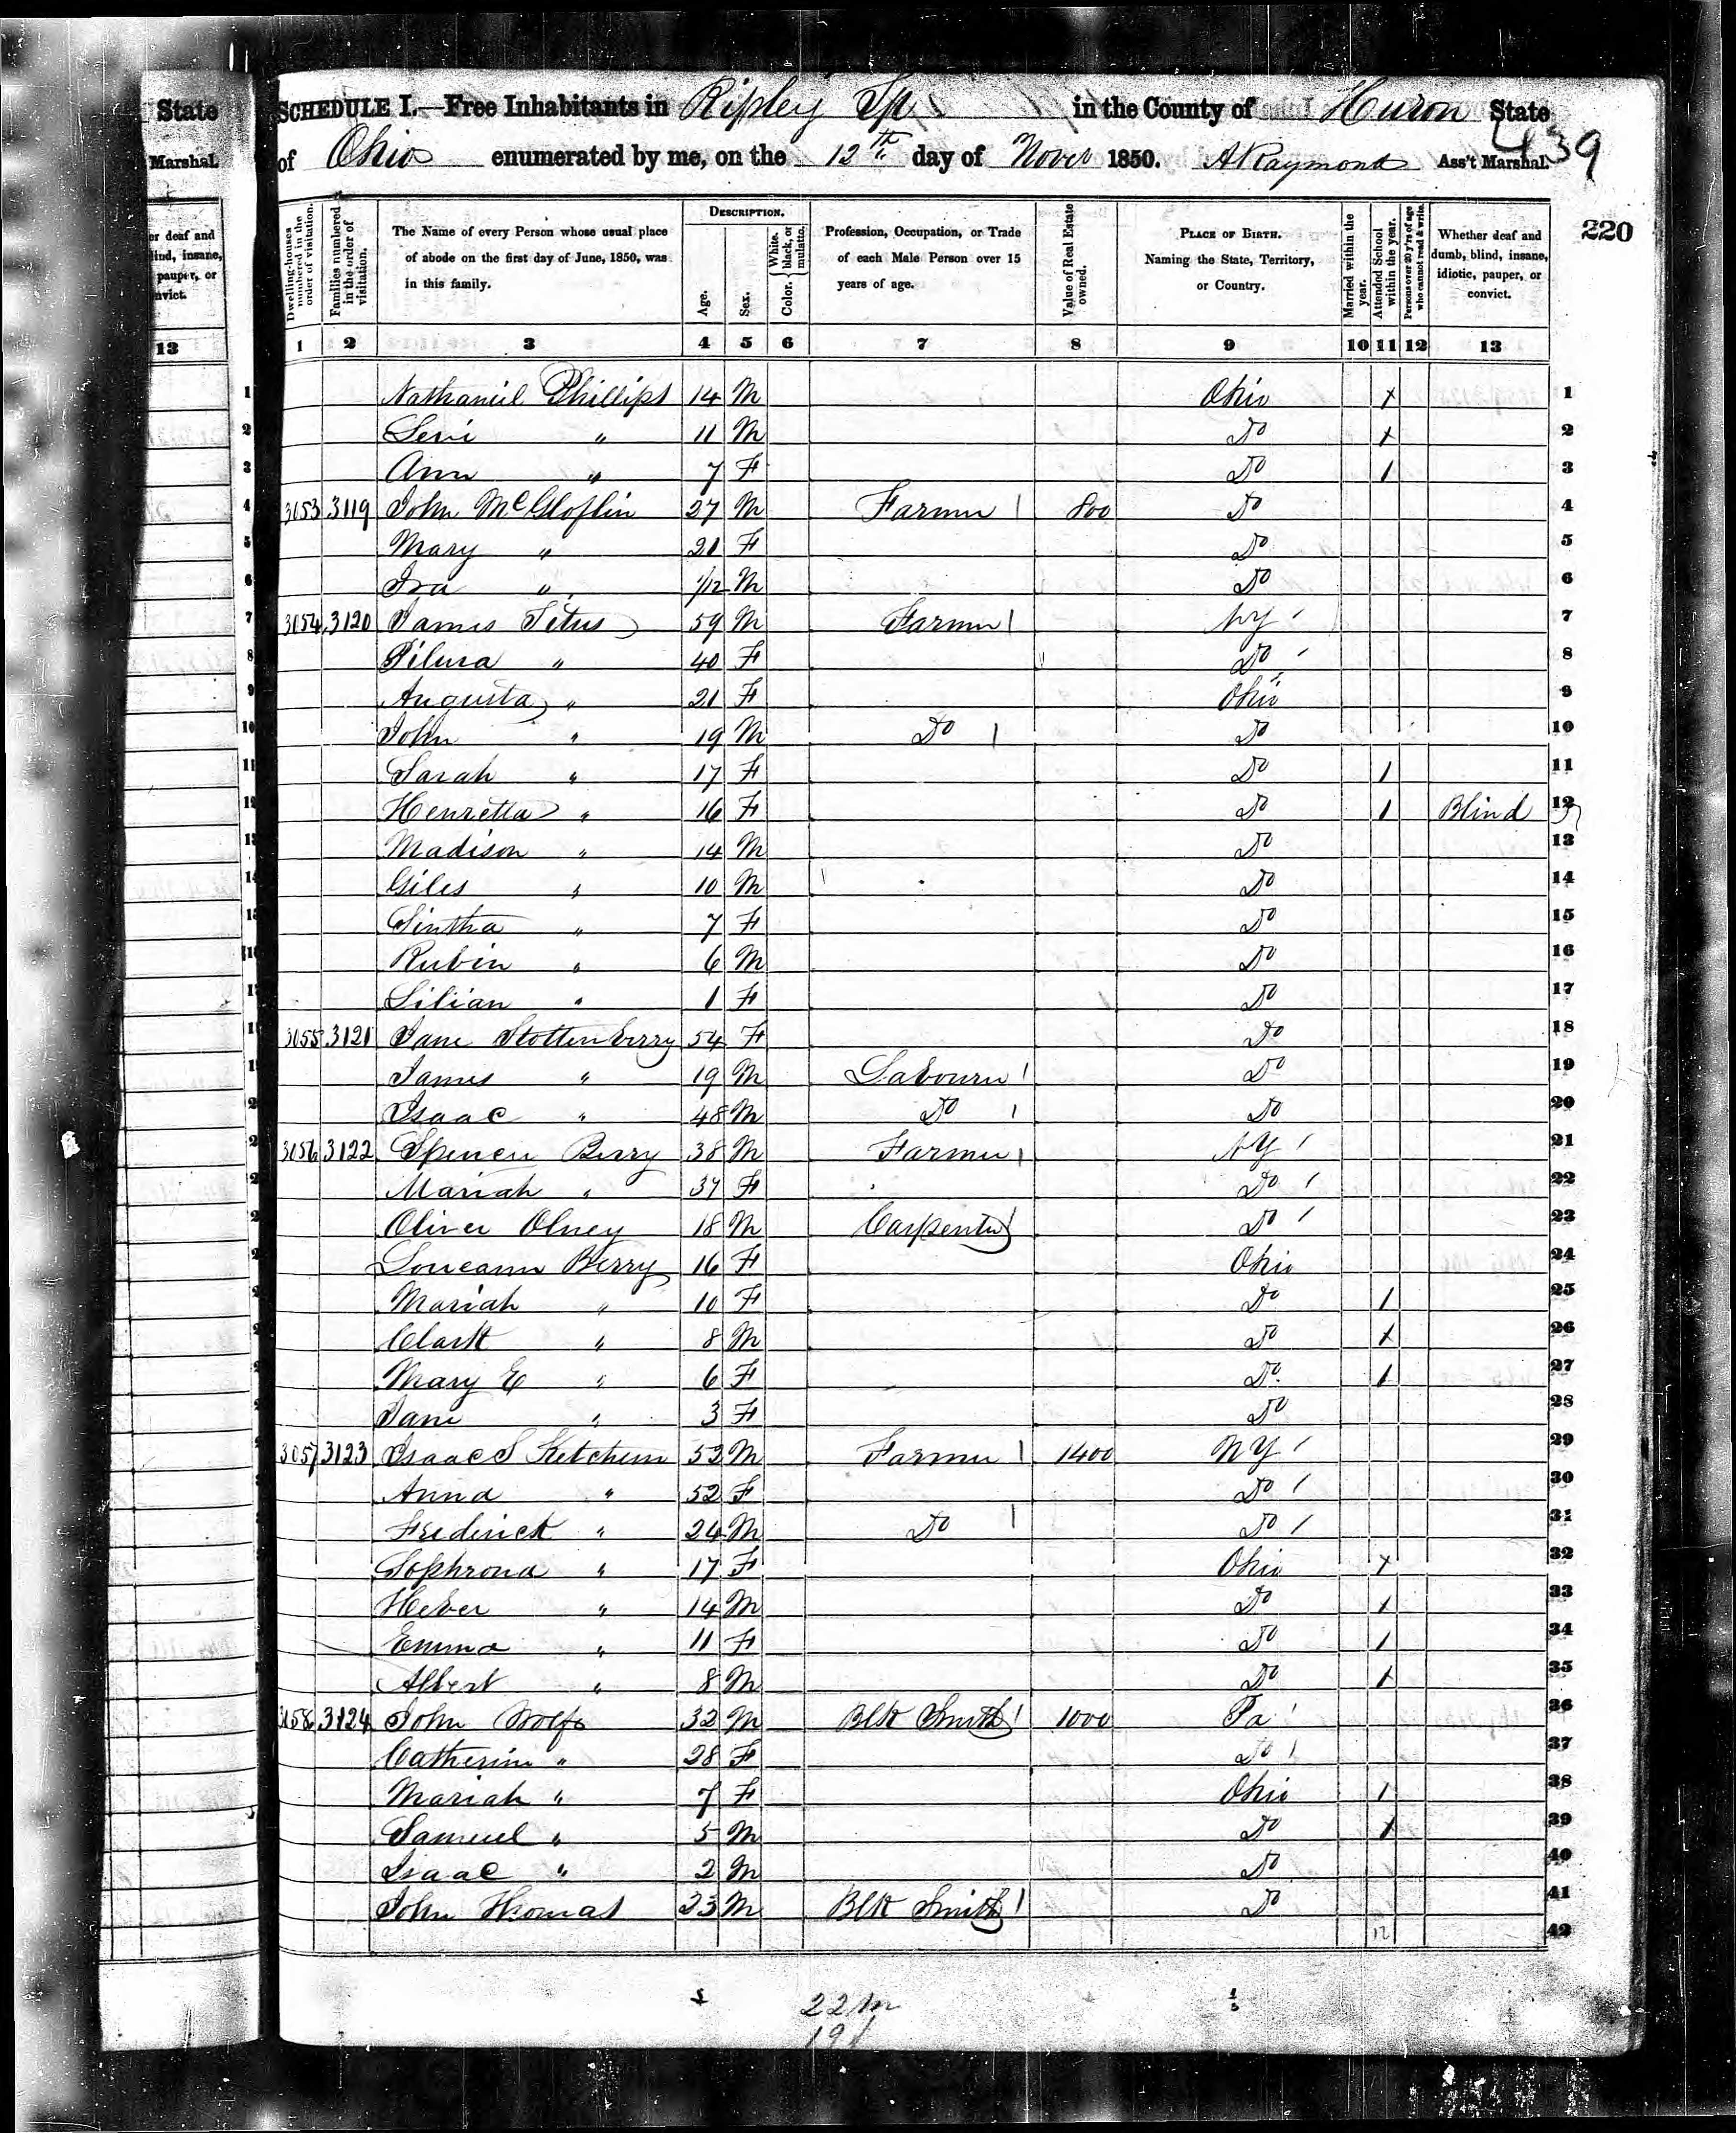 State
Marshal.
er deaf and
lind, insane,
pauper, or
nvict.
13
SCHEDULE I.—Free Inhabitants in Ripley Tp in the County of Huron State
of Ohio enumerated by me, on the 12th day of Noveb 1850. A Raymond Ass't Marshal.
439
220
Dwelling-houses numbered in the order of visitation.
Families numbered in the order of visitation.
The Name of every Person whose usual place of abode on the first day of June, 1850, was in this family.
DESCRIPTION.
Age.
Sex.
Color. { White, black, or mulatto.
Profession, Occupation, or Trade of each Male Person over 15 years of age.
Value of Real Estate owned.
PLACE OF BIRTH. Naming the State, Territory, or Country.
Married within the year.
Attended School within the year.
Persons over 20 y'rs of age who cannot read & write.
Whether deaf and dumb, blind, insane, idiotic, pauper, or convict.
1 2 3 4 5 6 7 8 9 10 11 12 13
1 Nathaniel Phillips 14 M Ohio x 1
2 Levi " 11 M Do x 2
3 Ann " 7 F Do / 3
4 3053 3119 John McGloflin 27 M Farmer / 800 Do 4
5 Mary " 21 F Do 5
6 Ira " 1/12 M Do 6
7 3054 3120 James Titus 59 M Farmer / NY / 7
8 " 40 F Do / 8
9 Augusta " 21 F Ohio 9
10 John " 19 M Do / Do 10
11 Sarah " 17 F Do / 11
12 Henretta " 16 F Do / Blind 12
13 Madison " 14 M Do 13
14 Giles " 10 M Do 14
15 Sintha " 7 F Do 15
16 Rubin " 6 M Do 16
17 Lilian " 1 F Do 17
18 3055 3121 Jane Stottenberry 54 F Do 18
19 James " 19 M Labourer / Do 19
20 Isaac " 48 M Do / Do 20
21 3056 3122 Spencer Berry 38 M Farmer / NY / 21
22 Mariah " 37 F Do / 22
23 Oliver Olney 18 M Carpenter / Do / 23
24 Loucann Berry 16 F Ohio 24
25 Mariah " 10 F Do / 25
26 Clark " 8 M Do x 26
27 Mary E " 6 F Do / 27
28 Jane " 3 F Do 28
29 3057 3123 Isaac S Ketchum 53 M Farmer / 1400 NY / 29
30 Anna " 52 F Do / 30
31 Frederick " 24 M Do / Do / 31
32 Sophrona " 17 F Ohio x 32
33 Heber " 14 M Do / 33
34 Emma " 11 F Do / 34
35 Albert " 8 M Do x 35
36 3058 3124 John Wolfe 32 M Blk Smith / 1000 Pa / 36
37 Catherine " 28 F Do / 37
38 Mariah " 7 F Ohio / 38
39 Samuel " 5 M Do x 39
40 Isaac " 2 M Do 40
41 John Thomas 23 M Blk Smith / Do 41
42 12
22 m
19 f